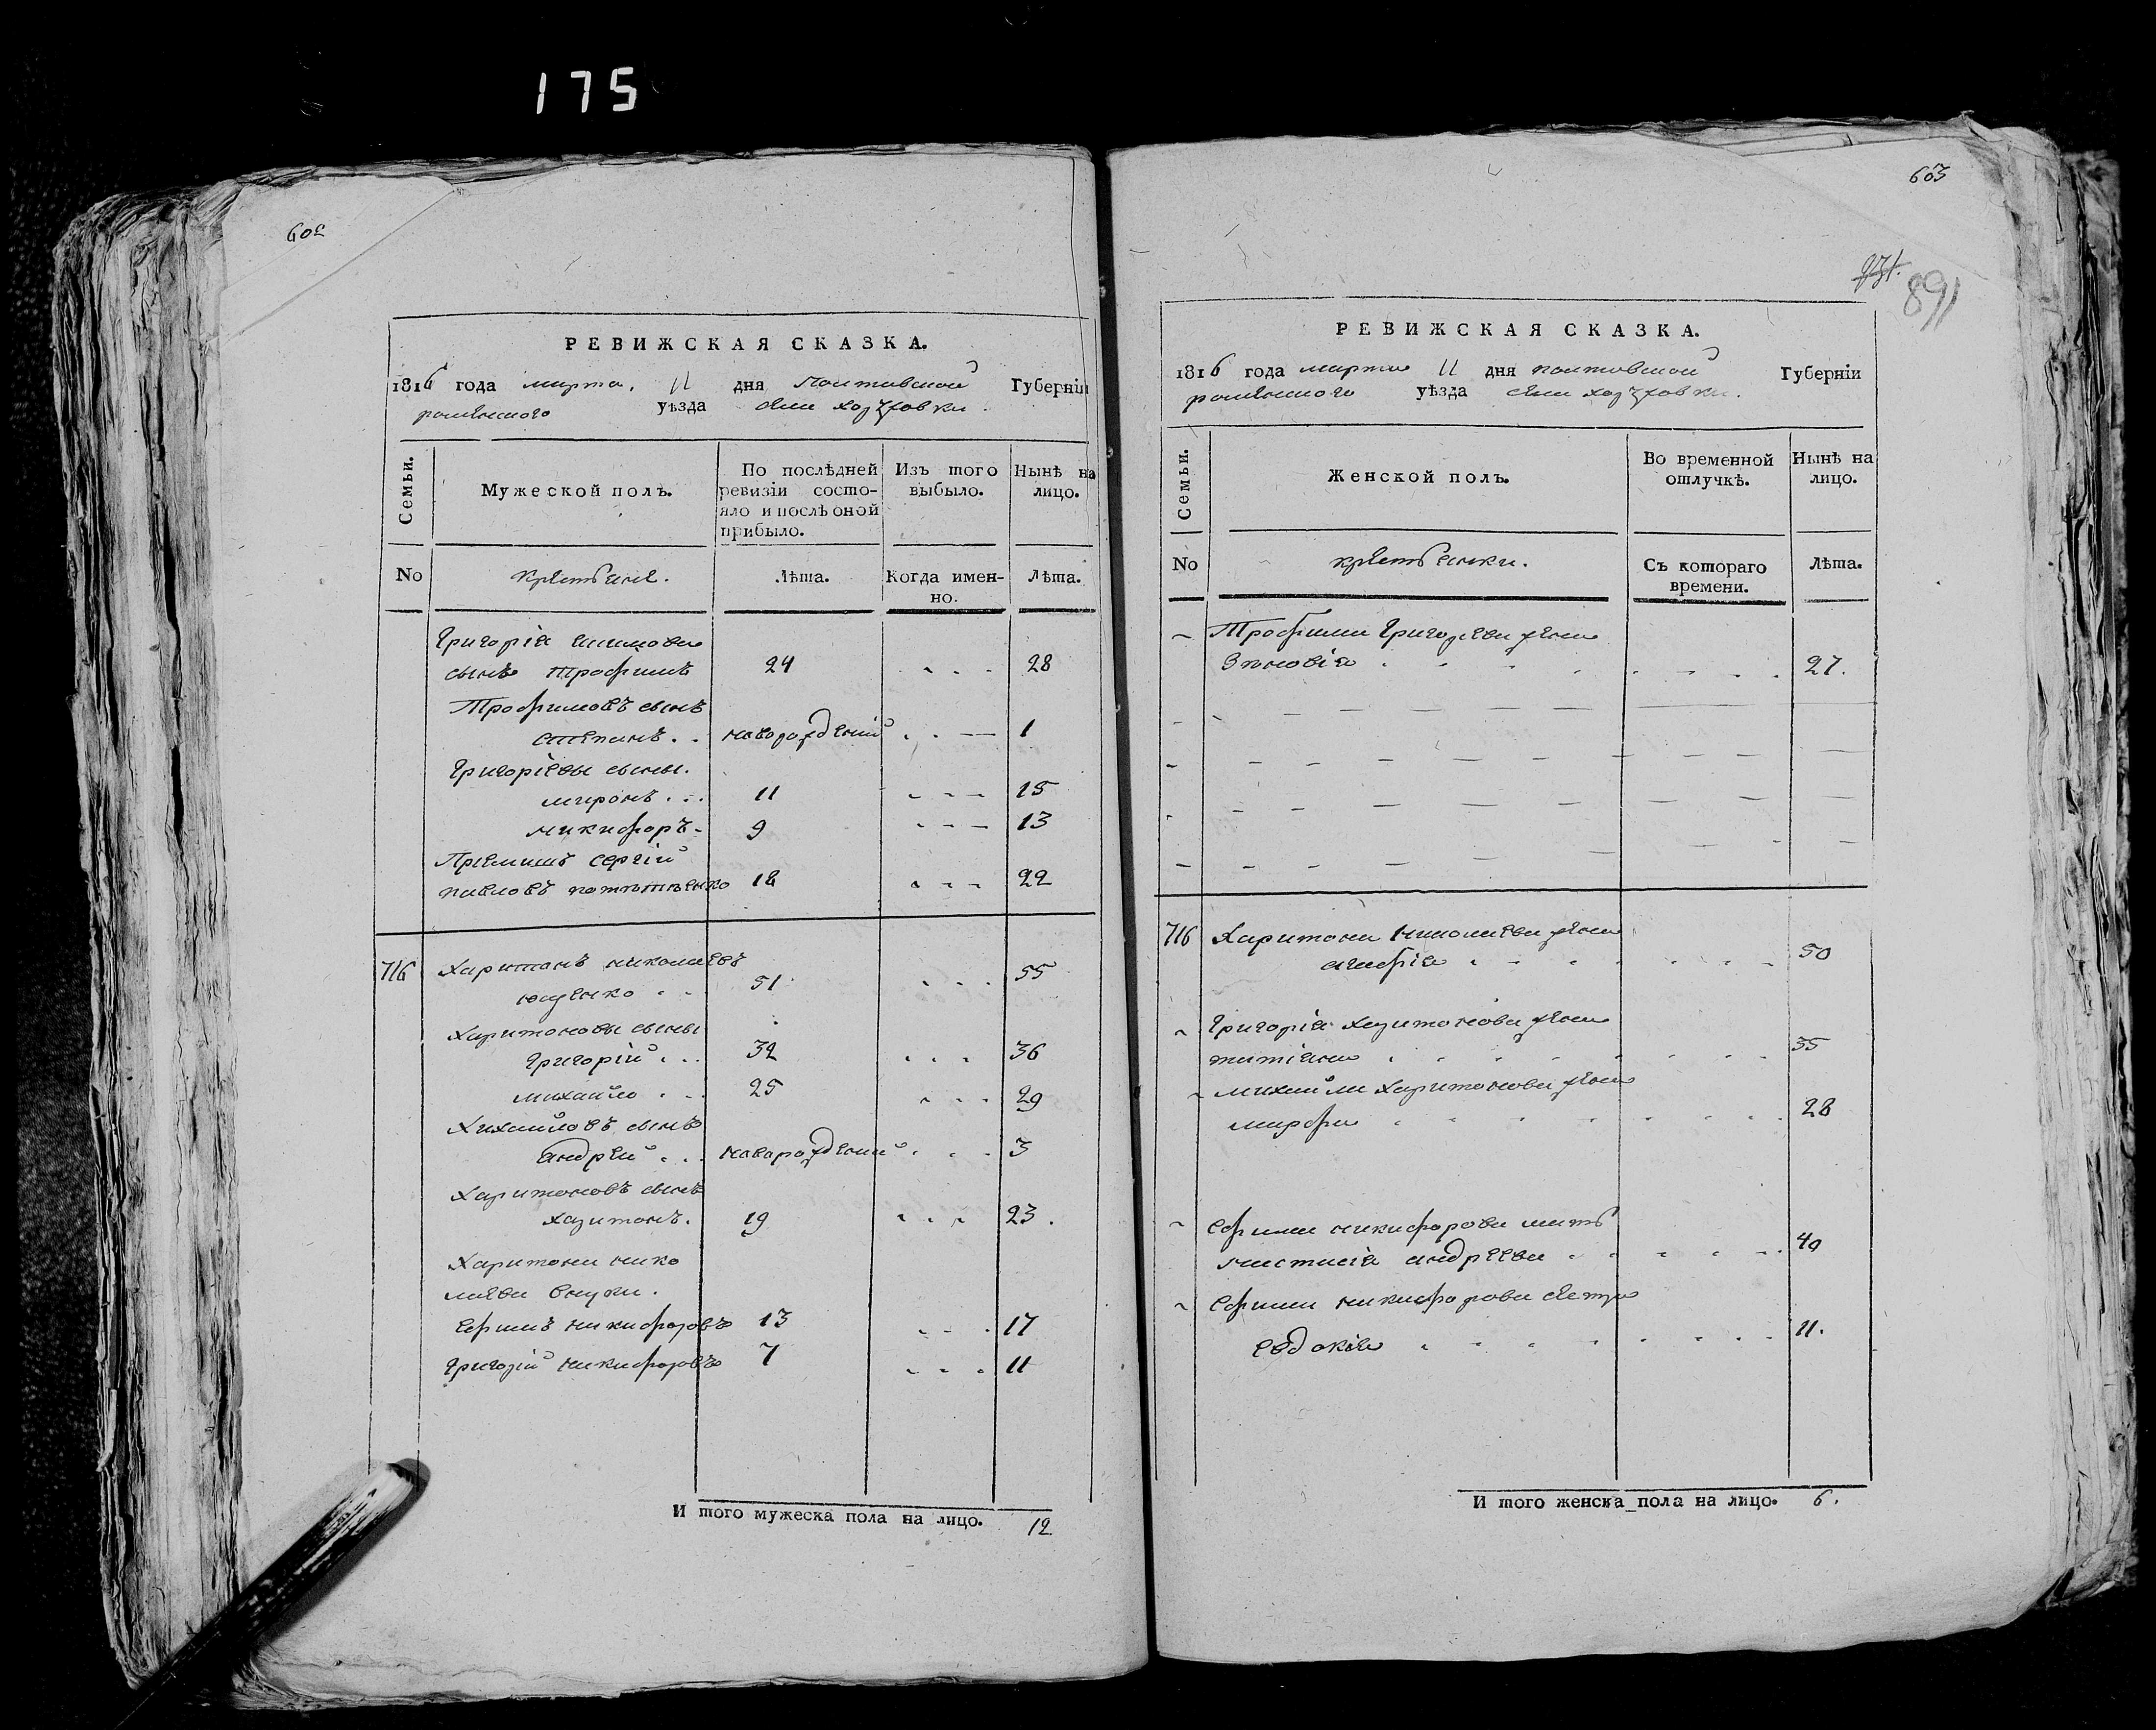 175
602
РЕВИЖСКАЯ СКАЗКА.
1816 года марта 11 дня Полтавской Губерніи
роменского уѣзда села
Семьи.
Мужеской полъ.
По послѣдней ревизіи состо-
яло и послѣ оной
прибыло.
Изъ того
выбыло.
Нынѣ на
лицо.
No
Крестьяне.
Лѣта.
Когда имен-
но.
Лѣта.
Григорія
сынъ Трофимъ 24 28
Трофимовъ сынъ
степанъ . . новорожденый 1
Григоріевы сыны.
миронъ . . . 11 15
никифоръ - 9 13
Пріемышъ сергій
павловъ 18 22
716 Харитонъ николаевъ
51 55
Харитоновы сыны
Григорій . . . 32 36
михайло . . . 25 29
Михайловъ сынъ
андрей . . . новорожденый 3
Харитоновъ сынъ
харитонъ. 19 23.
Харитона нико
лаева внуки.
Ефимъ никифоровъ 13 17
Григорій никифоровъ 7 11
И того мужеска пола на лицо. 12
603
931.
891
РЕВИЖСКАЯ СКАЗКА.
1816 года марта 11 дня полтавской Губерніи
роменского уѣзда села
Семьи.
Женской полъ.
Во временной
отлучкѣ.
Нынѣ на
лицо.
No
крестьянки.
Съ котораго
времени.
Лѣта.
Трофима Григорьева жена
Зѣновія 27.
716 Харитона николаева жена
агафія 50
Григорія харитонова жена
татіана 35
михайла харитонова жена
марфа 28
Ефима никифорова мать
настасія андреева 40
Ефима никифорова сестра
евдокія 11.
И того женска пола на лицо. 6.